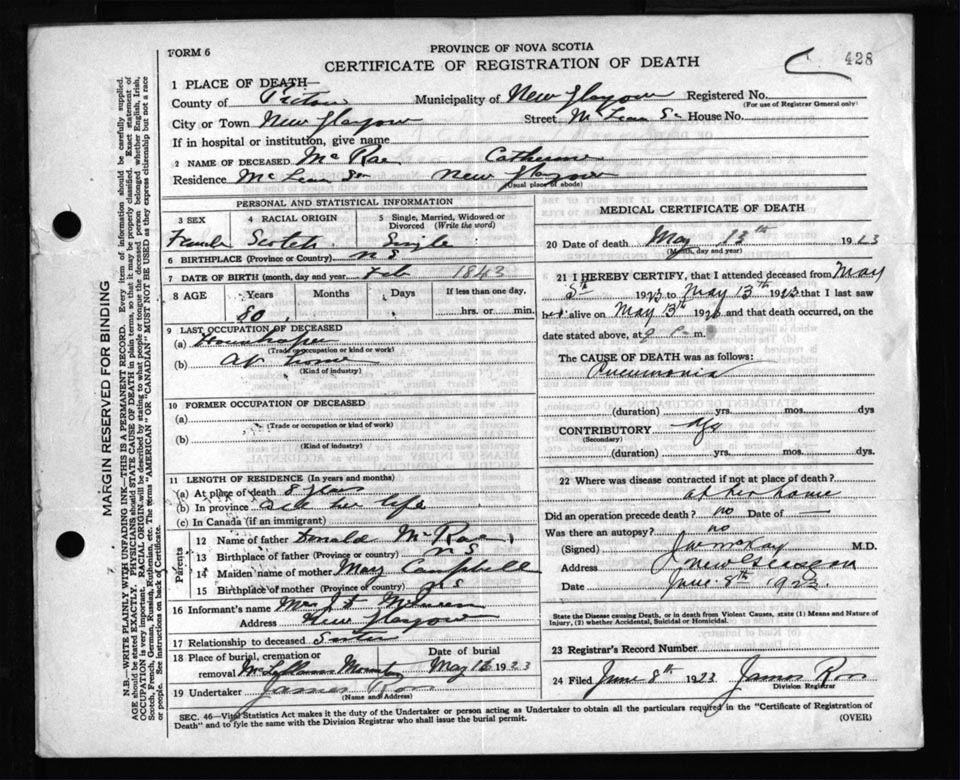 FORM 6
PROVINCE OF NOVA SCOTIA
CERTIFICATE OF REGISTRATION OF DEATH
428
1 PLACE OF DEATH—
County of Pictou Municipality of New Glasgow Registered No.
(For use of Registrar General only)
City or Town New Glasgow Street McLean St House No.
If in hospital or institution, give name
2 NAME OF DECEASED McRae Catherine
Residence McLean St New Glasgow
(Usual place of abode)
PERSONAL AND STATISTICAL INFORMATION
3 SEX 4 RACIAL ORIGIN 5 Single, Married, Widowed or Divorced (Write the word)
Female Scotch Single
6 BIRTHPLACE (Province or Country) N S
7 DATE OF BIRTH (month, day and year) Feb 1843
8 AGE Years Months Days If less than one day,
80 hrs. or min.
9 LAST OCCUPATION OF DECEASED
(a) Housekeeper
(Trade occupation or kind or work)
(b) At home
(Kind of industry)
10 FORMER OCCUPATION OF DECEASED
(a)
(Trade or occupation or kind of work)
(b)
(Kind of industry)
11 LENGTH OF RESIDENCE (In years and months)
(a) At place of death 8 years
(b) In province All her life
(c) In Canada (if an immigrant)
Parents
12 Name of father Donald McRae
13 Birthplace of father (Province or country) N S
14 Maiden name of mother Mary Campbell
15 Birthplace of mother (Province or country) N S
16 Informant's name Mrs
Address New Glasgow
17 Relationship to deceased Sister
18 Place of burial, cremation or removal Date of burial
McLellans Mountain May 1923
19 Undertaker James Ross
(Name and Address)
MEDICAL CERTIFICATE OF DEATH
20 Date of death May 13th 1923
(Month, day and year)
21 I HEREBY CERTIFY, that I attended deceased from May
8th 1923 to May 13th 1923 that I last saw
her alive on May 13th 1923 and that death occurred, on
date stated above, at 9 P m.
The CAUSE OF DEATH was as follows:
Pneumonia
(duration) yrs. mos. dys
CONTRIBUTORY
(Secondary)
(duration) yrs. mos. dys.
22 Where was disease contracted if not at place of death?
at her home
Did an operation precede death? no Date of —
Was there an autopsy? no
(Signed) J W McKay M.D.
Address New Glasgow
Date June 8th 1923
State the Disease causing Death, or in death from Violent Causes, state (1) Means and Nature of
Injury, (2) whether Accidental, Suicidal or Homicidal.
23 Registrar's Record Number
24 Filed June 8th 1923 James Ross
Division Registrar
SEC. 46—Vital Statistics Act makes it the duty of the Undertaker or person acting as Undertaker to obtain all the particulars required in the "Certificate of Registration of
Death" and to fyle the same with the Division Registrar who shall issue the burial permit.
(OVER)
MARGIN RESERVED FOR BINDING
N.B.—WRITE PLAINLY WITH UNFADING INK—THIS IS A PERMANENT RECORD. Every item of information should be carefully supplied.
AGE should be stated EXACTLY. PHYSICIANS should STATE CAUSE OF DEATH in plain terms, so that it may be properly classified. Exact statement of
OCCUPATION is very important. RACIAL ORIGIN will be described by stating to what people or tongue the deceased person belonged whether English, Irish,
Scotch, French, German, Russian, Ruthenian, etc. The terms "AMERICAN" OR "CANADIAN" MUST NOT BE USED as they express citizenship but not a race
or people. See instructions on back of Certificate.